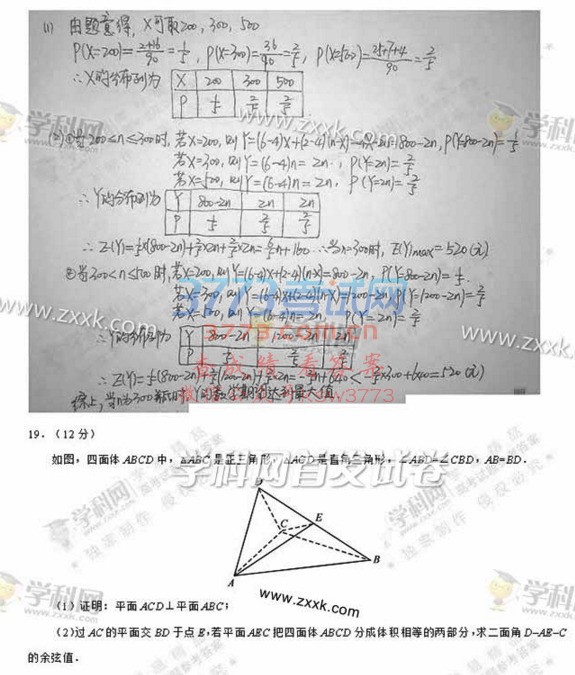 (1) 由题意得, X可取200, 300, 500
P(X=200)=2+16/90=1/5, P(X=300)=36/90=2/5, P(X=500)=25+7+4/90=2/5
∴X的分布列为 X 200 300 500
P 1/5 2/5 2/5
(2)①当200≤n≤300时, 若X=200, 则Y=(6-4)X+(2-4)(n-X)=4X-2n=800-2n, P(Y=800-2n)=1/5
若X=300, 则Y=(6-4)n=2n, P(Y=2n)=2/5
若X=500, 则Y=(6-4)n=2n, P(Y=2n)=2/5
∴Y的分布列为 Y 800-2n 2n 2n
P 1/5 2/5 2/5
∴E(Y)=1/5×(800-2n)+2/5×2n+2/5×2n=6/5n+160 ∴当n=300时, E(Y)max=520(元)
②当300<n≤500时, 若X=200, 则Y=(6-4)X+(2-4)(n-X)=800-2n, P(Y=800-2n)=1/5
若X=300, 则Y=(6-4)X+(2-4)(n-X)=1200-2n, P(Y=1200-2n)=2/5
若X=500, 则Y=(6-4)n=2n, P(Y=2n)=2/5
∴Y的分布列为 Y 800-2n 1200-2n 2n
P 1/5 2/5 2/5
∴E(Y)=1/5(800-2n)+2/5(1200-2n)+2/5×2n=-2/5n+640<-2/5×300+640=520(元)
综上, 当n为300瓶时, Y的数学期望达到最大值
3773考试网
3773.com.cn
查成绩 看答案
学科网
www.zxxk.com
19.(12分)
如图, 四面体ABCD中, △ABC是正三角形, △ACD是直角三角形, ∠ABD=∠CBD, AB=BD.
学科网首发试卷
D
C
E
A
B
www.zxxk.com
(1)证明:平面ACD⊥平面ABC;
(2)过AC的平面交BD于点E,若平面AEC把四面体ABCD分成体积相等的两部分,求二面角D-AE-C
的余弦值.